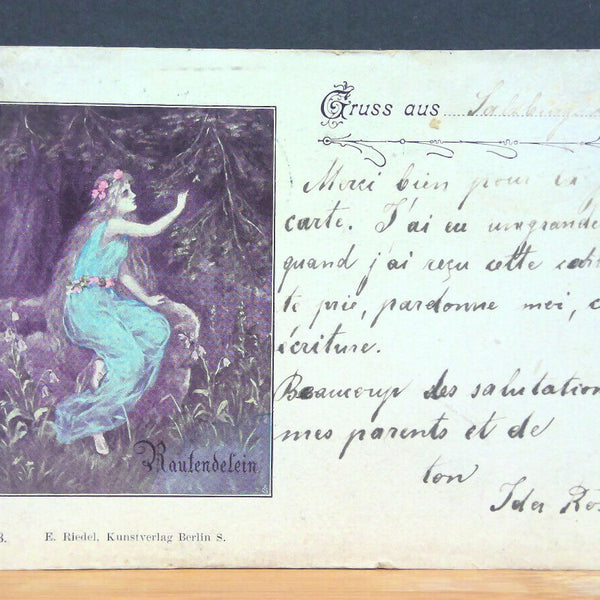 Gruss aus Salzburg
Merci bien pour
carte. J'ai eu un grande
quand j'ai reçu cette
te prie, pardonne moi,
écriture.
Beaucoup des salutation
mes parents et de
ton
Ida
Rautendelein
E. Riedel, Kunstverlag Berlin S.